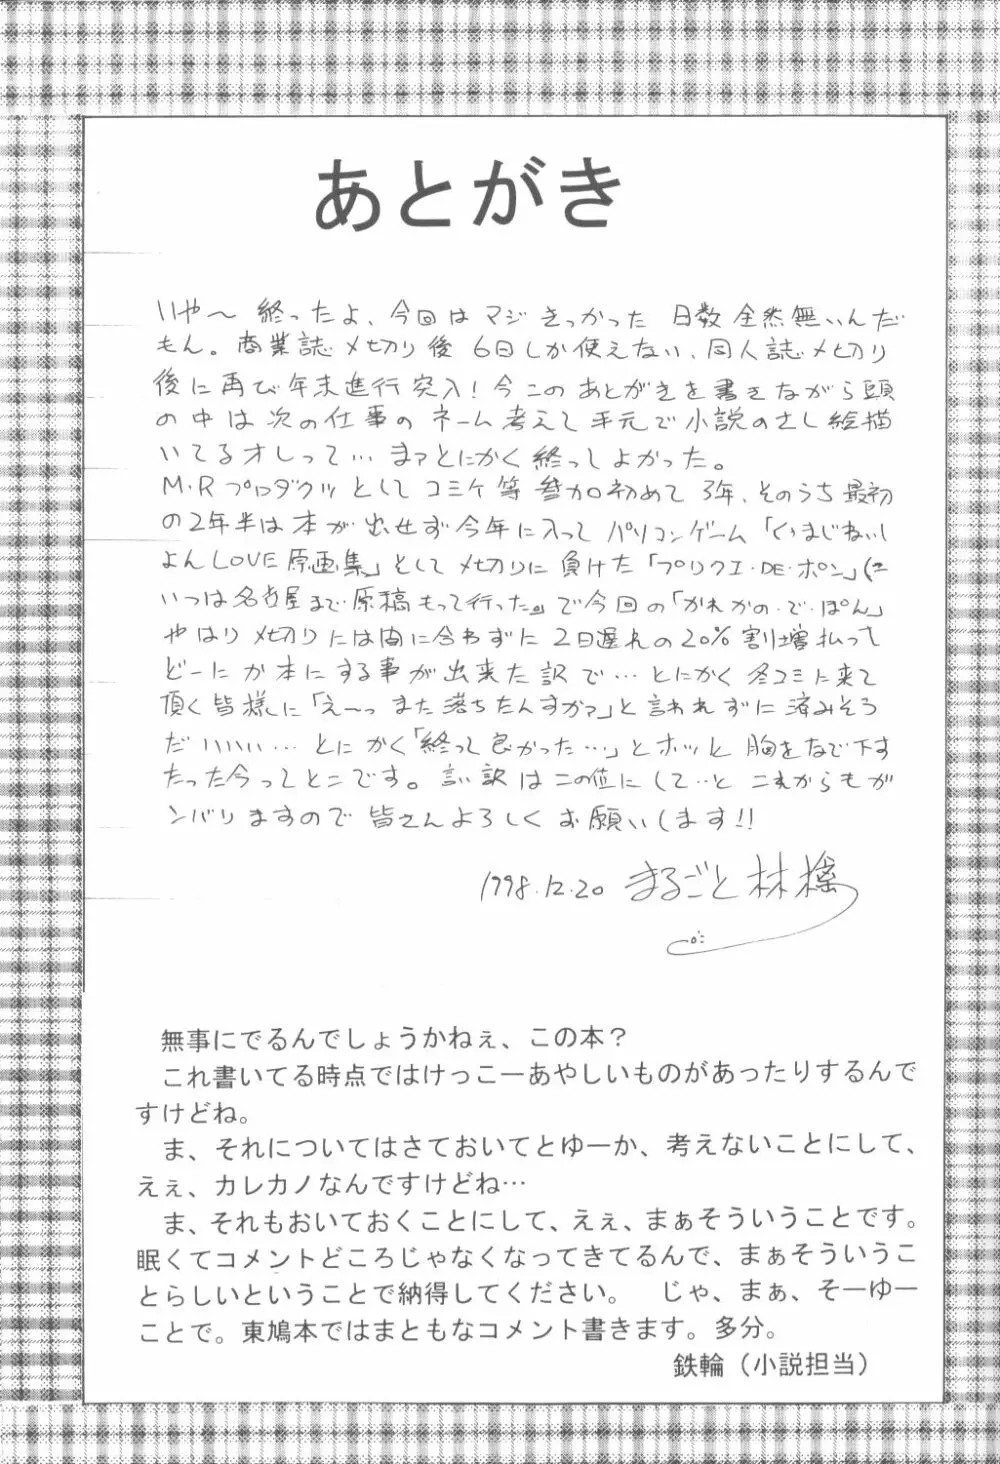 あとがき
いやー 終ったよ、今回は マジ きっかった 日数 全然無いんだ
もん。商業誌〆切り後 6日しか使えない、同人誌〆切り
後に再び年末進行突入!今このあとがきを書きながら頭
の中は次の仕事の ネーム考えて手元で小説のさし絵描
いてるオレって… まァとにかく終ってよかった。
M・R プロダクツ として コミケ 等 参加初めて 3年、そのうち最初
の2年半は本が出せず今年に入って パソコンゲーム「くりまじねいし
よんLOVE原画集」として 〆切りに負けた「プリクエ・DE・ポン」(こ
いつは名古屋まで原稿もって行った。)で今回の「かれかの・で・ぽん」
やはり 〆切りには間に合わずに 2日遅れの20%割増払って
どーにか本にする事が出来た訳で… とにかく冬コミに来て
頂く皆様に「え〜っ また落ちたんすかァ」と言われずに済みそう
だ いいい… とにかく「終って良かった…」とホッと 胸をなで下す
たった今ってとこです。言い訳はこの位にして…と これからもガ
ンバりますので皆さんよろしくお願いします!!
1998.12.20 まるごと林檎
無事にでるんでしょうかねぇ、この本?
これ書いてる時点ではけっこーあやしいものがあったりするんで
すけどね。
ま、それについてはさておいてとゆーか、考えないことにして、
えぇ、カレカノなんですけどね…
ま、それもおいておくことにして、えぇ、まぁそういうことです。
眠くてコメントどころじゃなくなってきてるんで、まぁそういうこ
とらしいということで納得してください。 じゃ、まぁ、そーゆー
ことで。東鳩本ではまともなコメント書きます。多分。
鉄輪(小説担当)